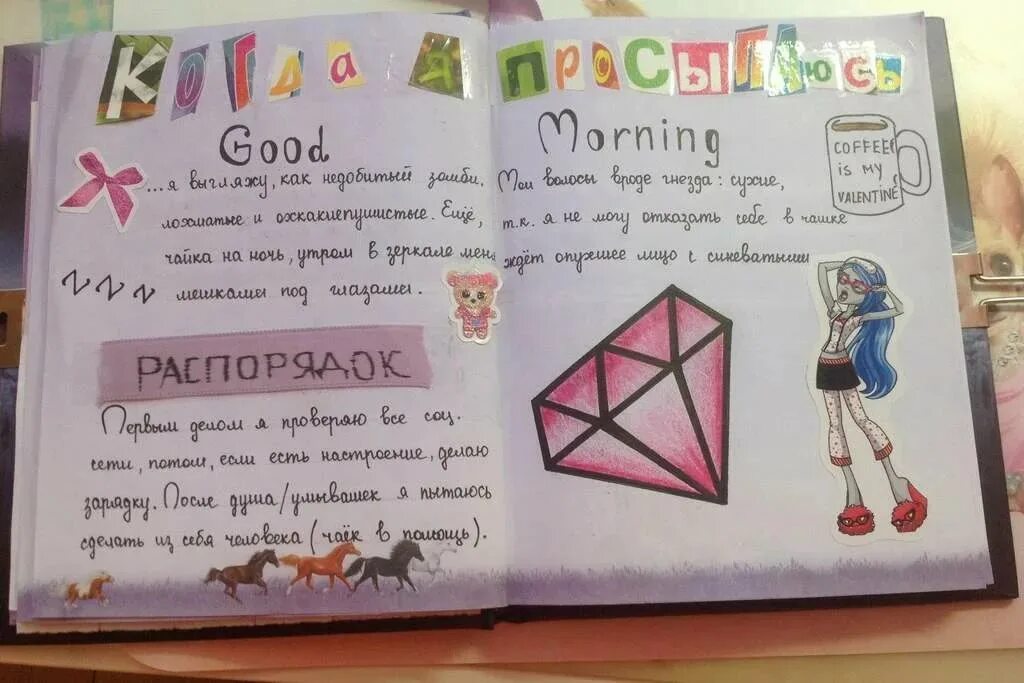 Когда я проСЫПаюсь
Good Morning
...я выгляжу, как недобитый зомби. Мои волосы вроде гнезда: сухие,
лохматые и охкакиепушистые. Ещё, т.к. я не могу отказать себе в чашке
чайка на ночь, утром в зеркале меня ждёт опухшее лицо с синеватыми
мешками под глазами.
COFFEE
is MY
VALENTINE
ZZZ
РАСПОРЯДОК
Первым делом я проверяю все соц.
сети, потом, если есть настроение, делаю
зарядку. После душа/умывашек я пытаюсь
сделать из себя человека (чаёк в помощь).